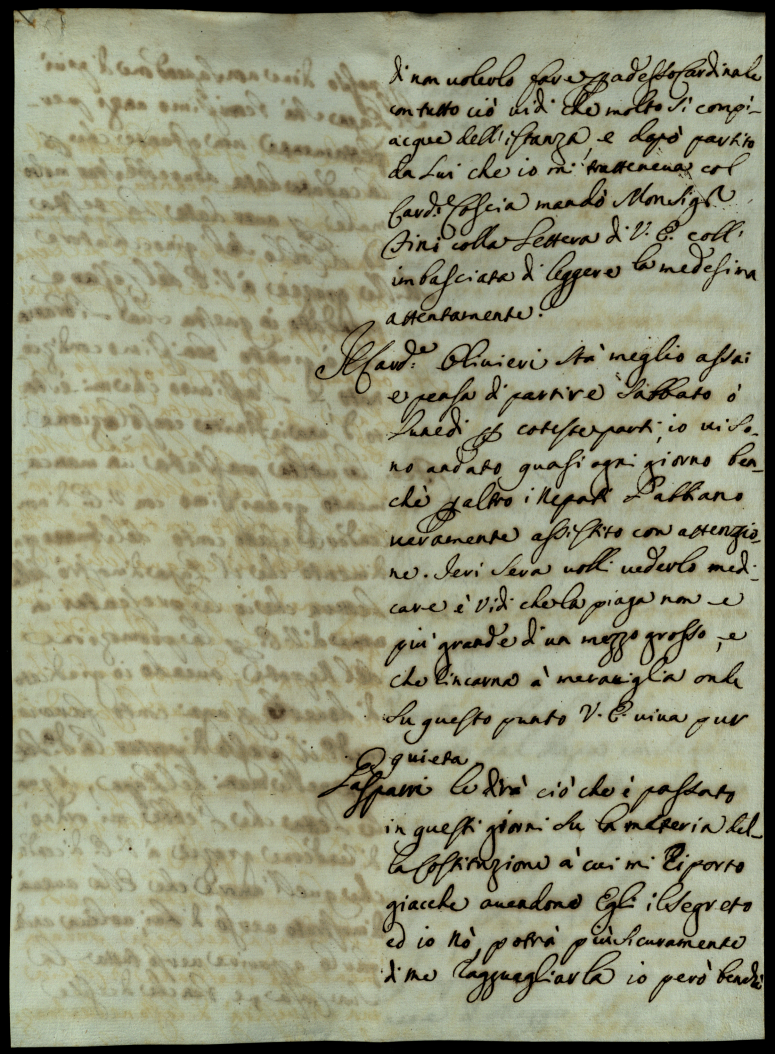 di non volerlo fare p adesso Cardinale
con tutto ciò vidi che molto si compi-
acque dell'istanza, e dopò partito
da Lui che io mi tratteneva col
Card.e Coscia mandò Monsig.r
Fini colla Lettera di V. E. coll'
imbasciata di leggere la medesima
attentamente.
Il Card.e Olivieri stà meglio assai
e pensa di partire Sabbato ò
Lunedì p coteste parti, io vi so-
no andato quasi ogni giorno ben-
chè p altro i Nepoti l'abbiano
veramente assistito con attenzio-
ne. Ieri sera volli vederlo medi-
care è vidi che la piaga non è
più grande di un mezzo grosso, e
che l'incarna à meraviglia onde
su questo punto V. E. viva pur
quieta
Gasparri le dirà ciò che è passato
in questi giorni su la materia del-
la Costituzione à cui mi riporto
giacche avendone Egli il segreto
ed io nò, potrà più sicuramente
di me ragguagliarla io però benchè